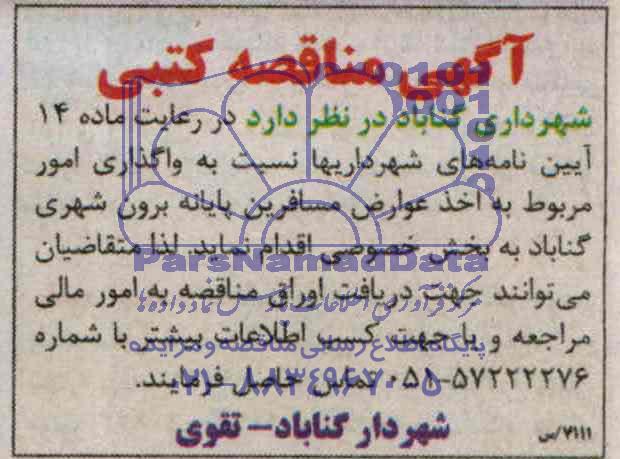 آگهی مناقصه کتبی
شهرداری گناباد در نظر دارد در رعایت ماده ۱۴
آیین نامه‌های شهرداریها نسبت به واگذاری امور
مربوط به اخذ عوارض مسافرین پایانه برون شهری
گناباد به بخش خصوصی اقدام نماید. لذا متقاضیان
ParsNamadData
می‌توانند جهت دریافت اوراق مناقصه به امور مالی
مراجعه و یا جهت کسب اطلاعات بیشتر با شماره
پایگاه اطلاع رسانی مناقصه و مزایده
۰۵۱-۵۷۲۲۲۲۷۶ تماس حاصل فرمایند.
۰۲۱-۸۸۳۴۹۶۷۰-۵
شهردار گناباد - تقوی
۷۱۱۱/س